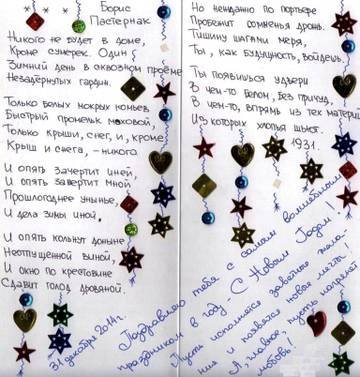 * * *
Борис
Пастернак
Никого не будет в доме,
Кроме сумерек. Один
Зимний день в сквозном проёме
Незадёрнутых гардин.
Только белых мокрых комьев
Быстрый промельк маховой,
Только крыши, снег, и, кроме
Крыш и снега, - никого.
И опять зачертит иней,
И опять завертит мной
Прошлогоднее унынье,
И дела зимы иной.
И опять кольнут доныне
Неотпущенной виной,
И окно по крестовине
Сдавит голод дровяной.
31 декабря 2014г.
Но нежданно по портьере
Пробежит сомненья дрожь.
Тишину шагами меря,
Ты, как будущность, войдёшь.
Ты появишься у двери
В чём-то белом, без причуд,
В чём-то, впрямь из тех материй,
Из которых хлопья шьют.
1931.
Поздравляю тебя с самым волшебным
праздником в году - С Новым Годом!
Пусть исполнятся заветные жела-
ния и появятся новая мечта!
А, главное, пусть
любовь!